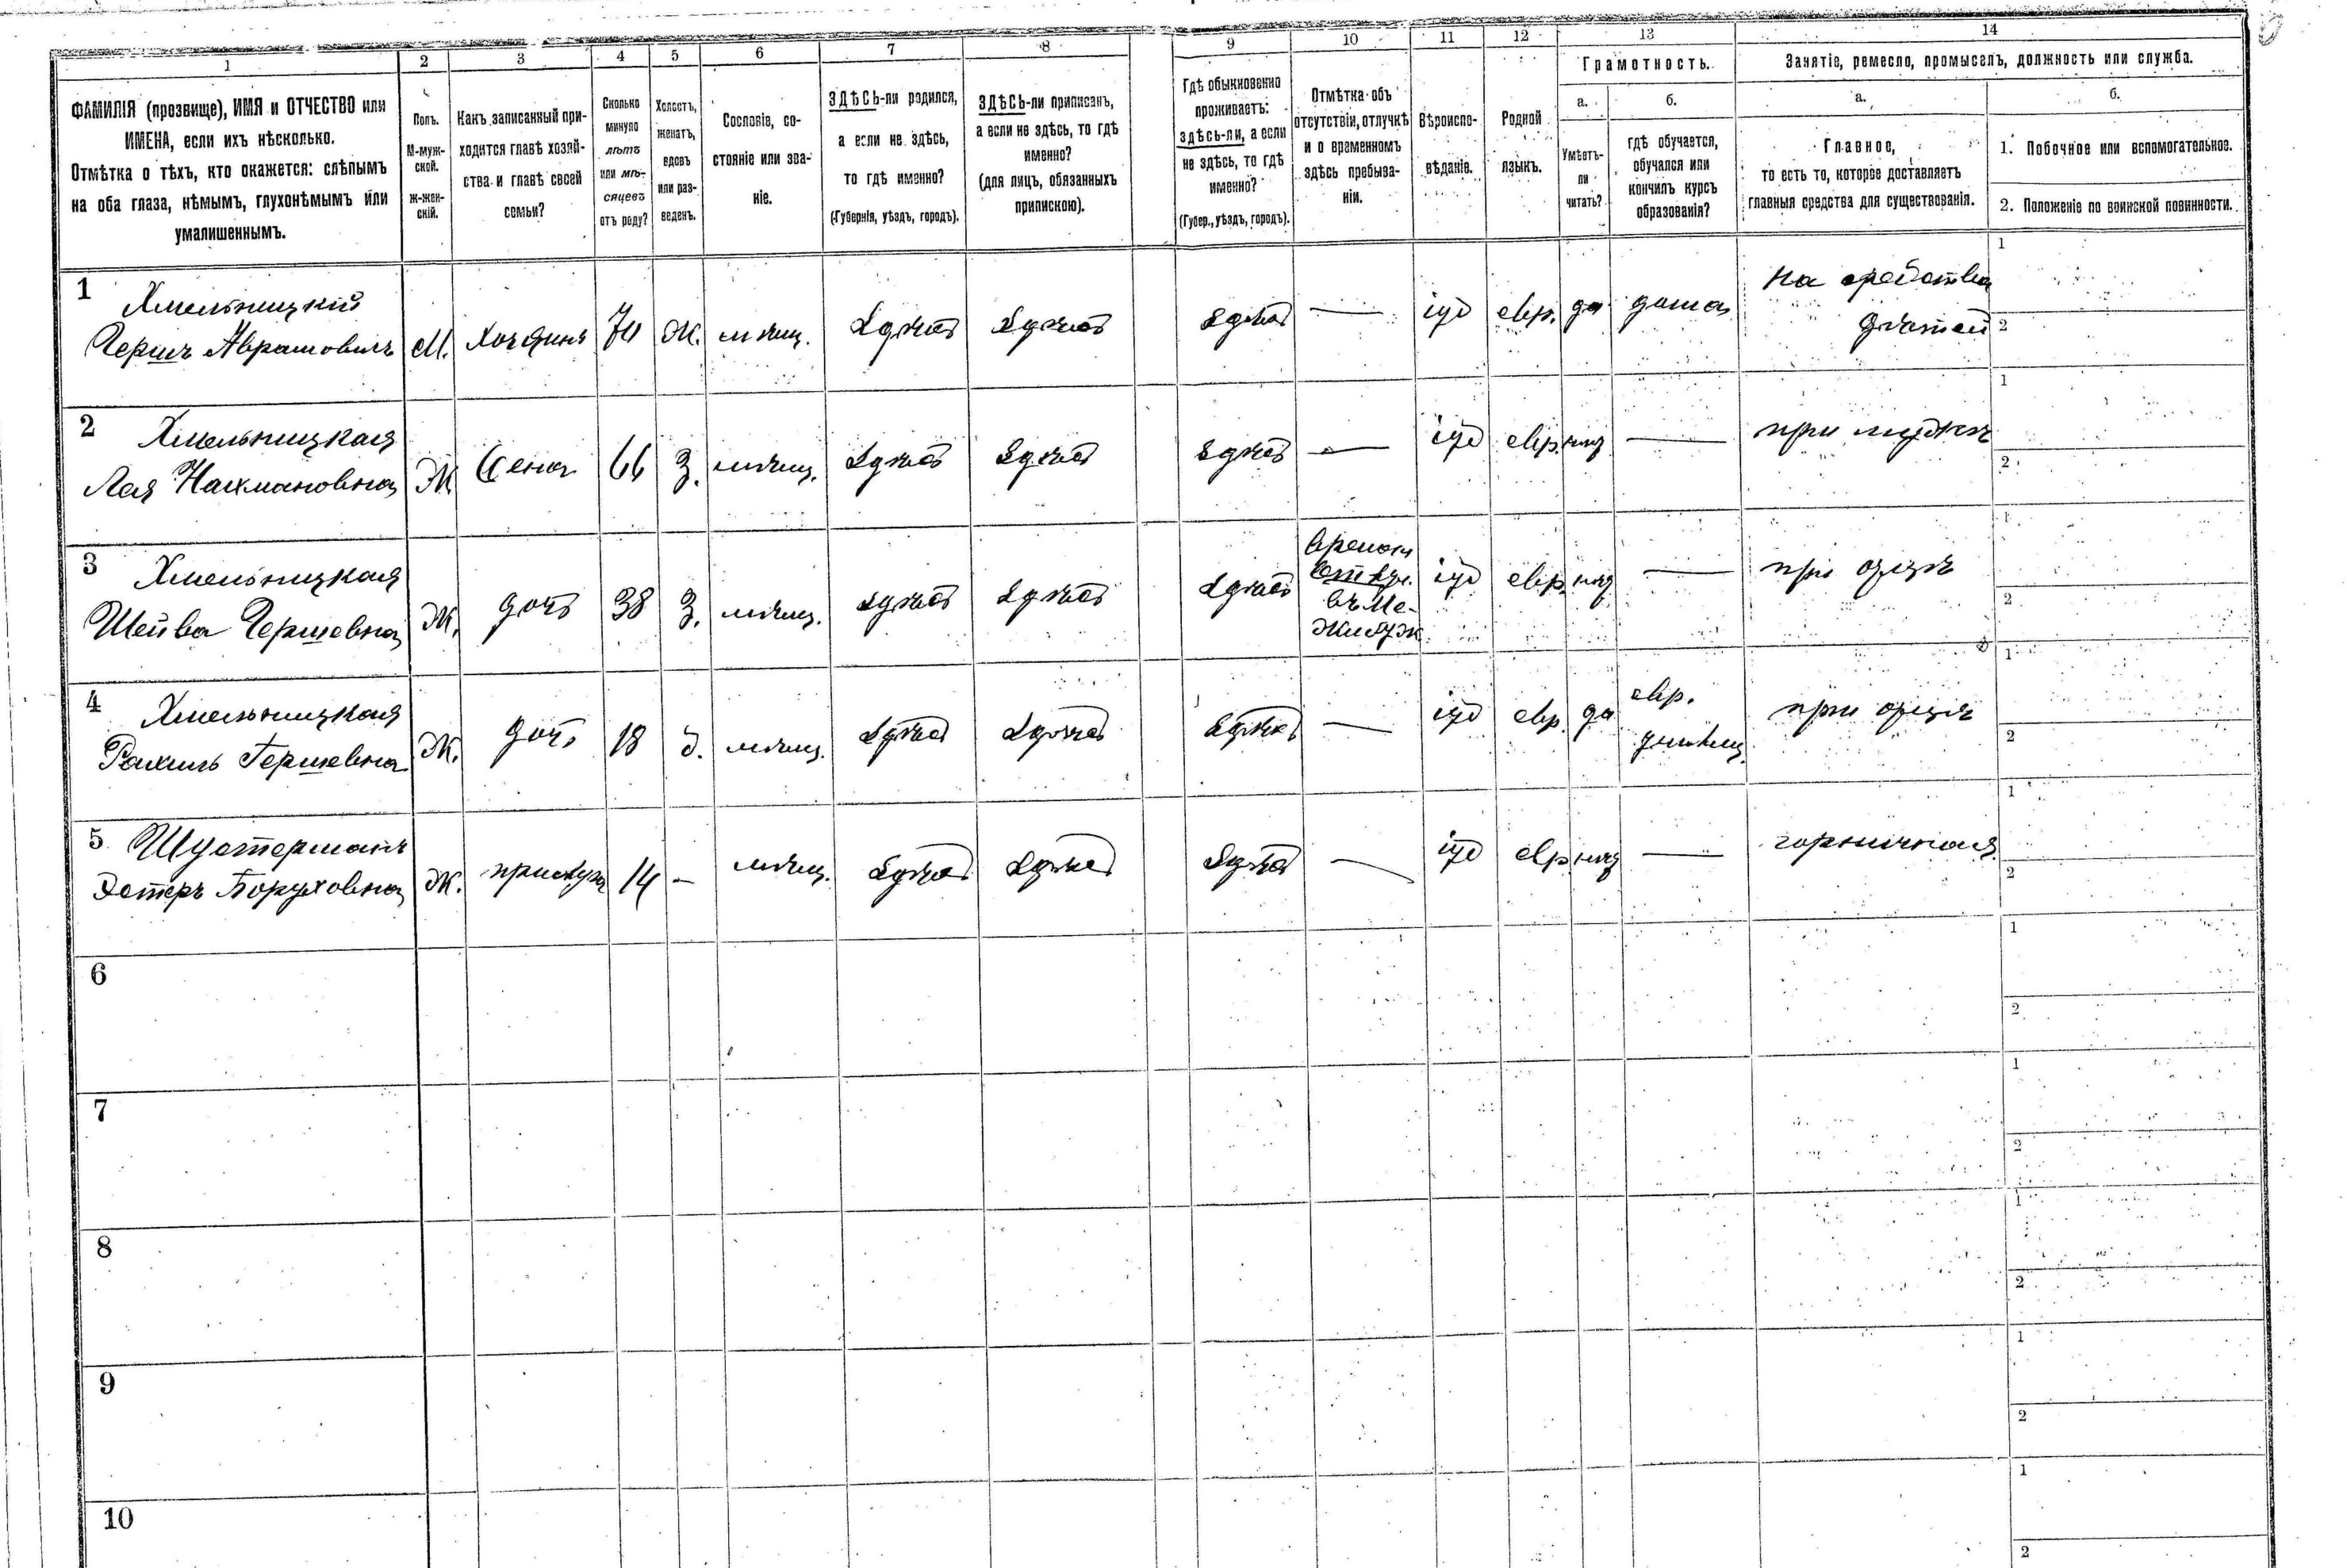 1 2 3 4 5 6 7 8 9 10 11 12 13 14
ФАМИЛІЯ (прозвище), ИМЯ и ОТЧЕСТВО или
ИМЕНА, если ихъ нѣсколько.
Отмѣтка о тѣхъ, кто окажется: слѣпымъ
на оба глаза, нѣмымъ, глухонѣмымъ или
умалишеннымъ.
Полъ.
М-муж-
ской.
Ж-жен-
скій.
Какъ записанный при-
ходится главѣ хозяй-
ства и главѣ своей
семьи?
Сколько
минуло
лѣтъ
или мѣ-
сяцевъ
отъ роду?
Холостъ,
женатъ,
вдовъ
или раз-
веденъ.
Сословіе, со-
стояніе или зва-
ніе.
ЗДѢСЬ-ли родился,
а если не здѣсь,
то гдѣ именно?
(Губернія, уѣздъ, городъ).
ЗДѢСЬ-ли приписанъ,
а если не здѣсь, то гдѣ
именно?
(для лицъ, обязанныхъ
припискою).
Гдѣ обыкновенно
проживаетъ:
здѣсь-ли, а если
не здѣсь, то гдѣ
именно?
(Губер., уѣздъ, городъ).
Отмѣтка объ
отсутствіи, отлучкѣ
и о временномъ
здѣсь пребыва-
ніи.
Вѣроиспо-
вѣданіе.
Родной
языкъ.
Грамотность.
а.
Умѣетъ-
ли
читать?
б.
гдѣ обучается,
обучался или
кончилъ курсъ
образованія?
Занятіе, ремесло, промыселъ, должность или служба.
а.
Главное,
то есть то, которое доставляетъ
главныя средства для существованія.
б.
1. Побочное или вспомогательное.
2. Положеніе по воинской повинности.
1 Хмельницкій
Гершъ Аврамовичъ М. Хозяинъ 70 Ж. мѣщ. Здѣсь Здѣсь Здѣсь — іуд евр. да дома
на средства
дѣтей
1
2
2 Хмельницкая
Лея Нахмановна Ж Жена 66 З. мѣщ. Здѣсь Здѣсь Здѣсь — іуд евр. нѣт — при мужѣ
1
2
3 Хмельницкая
Шейва Гершевна Ж. дочь 38 З. мѣщ. Здѣсь Здѣсь Здѣсь
Времен
въ Ме-
іуд евр. нѣт — при отцѣ
1
2
4 Хмельницкая
Рахиль Гершевна Ж. дочь 18 д. мѣщ. Здѣсь Здѣсь Здѣсь — іуд евр. да
евр.
училищ.
при отцѣ
1
2
5 Шустерманъ
Эстеръ Боруховна Ж. прислуга 14 — мѣщ. Здѣсь Здѣсь Здѣсь — іуд евр нѣт — горничная
1
2
6
1
2
7
1
2
8
1
2
9
1
2
10
1
2